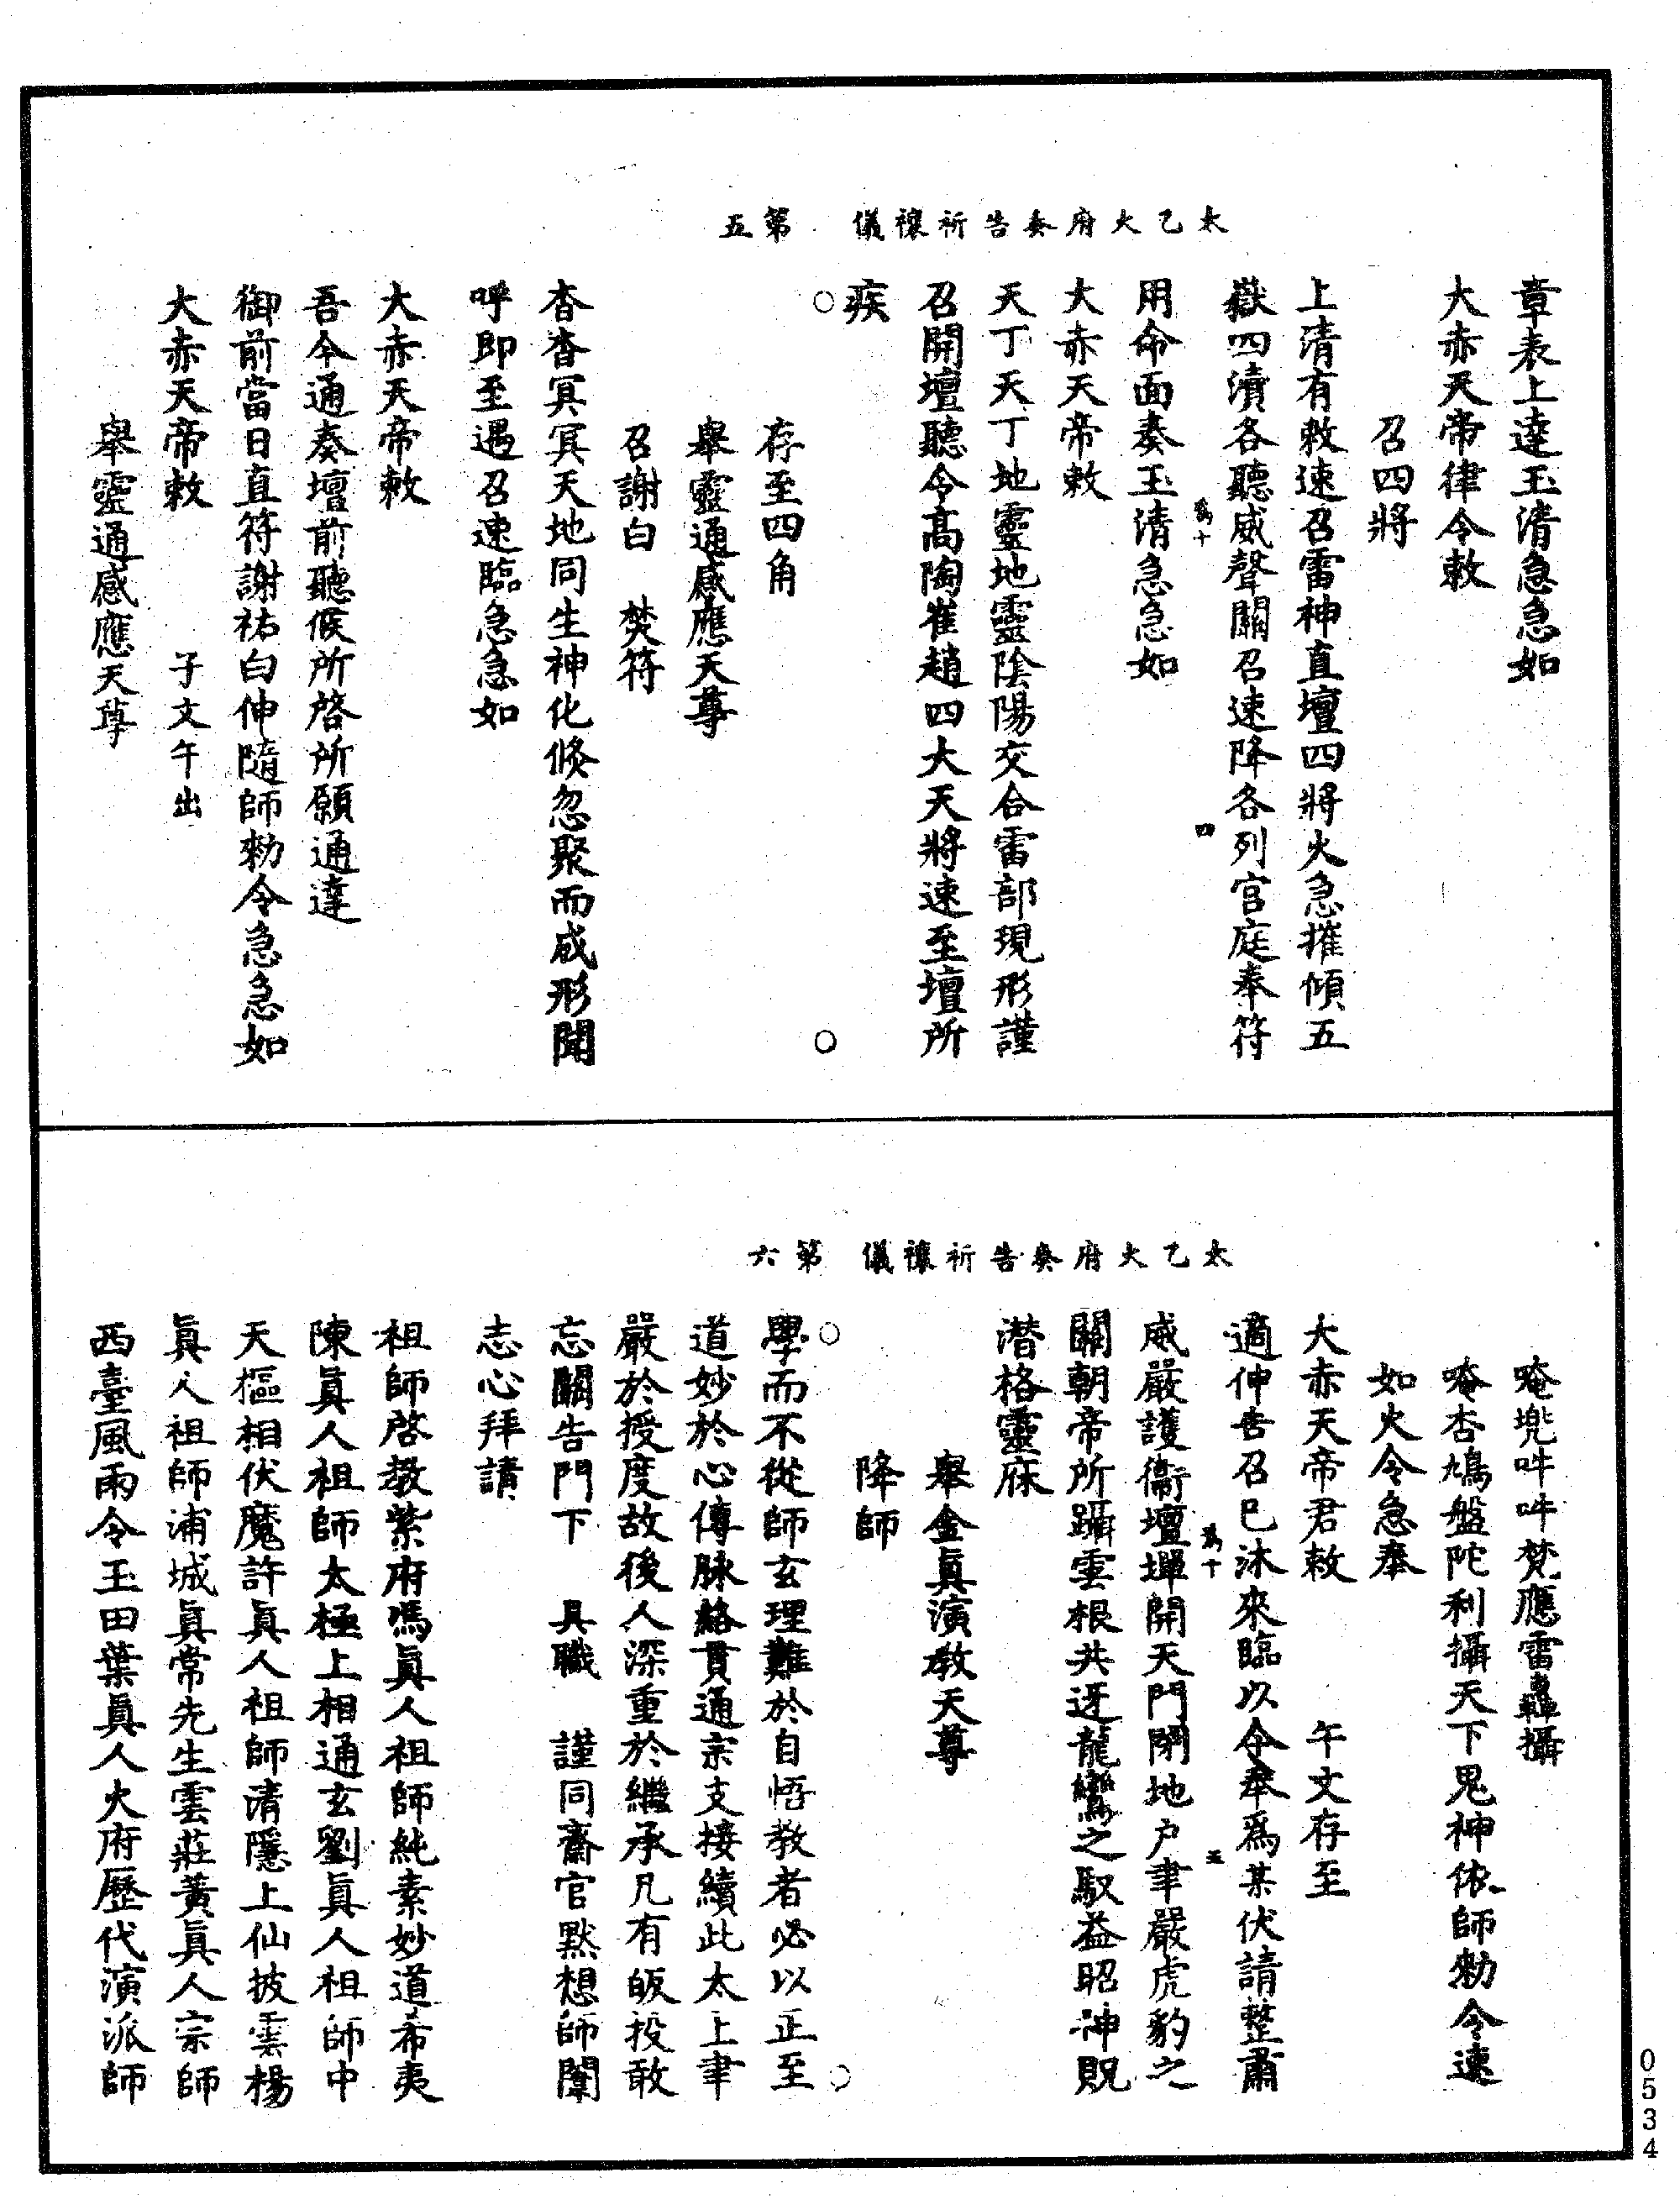 太乙火府奏告祈禳儀　第五
章表上達玉清急急如
大赤天帝律令敕
召四將
上清有敕速召雷神直壇四將火急摧傾五
嶽四瀆各聽威聲關召速降各列宫庭奉符
用命面奏玉清急急如
大赤天帝敕
天丁天丁地靈地靈陰陽交合雷部現形謹
召開壇聽令高陶崔趙四大天將速至壇所
疾
○　○
存至四角
舉靈通感應天尊
召謝白　焚符
杳杳冥冥天地同生神化倐忽聚而成形聞
呼即至遇召速臨急急如
大赤天帝敕
吾今通奏壇前聽候所啓所願通達
御前當日直符謝祐白伸隨師勑令急急如
大赤天帝敕　子文午出
舉靈通感應天尊
太乙火府奏告祈禳儀　第六
唵兠吽吽梵應雷轟攝
唵杏鳩盤陀利攝天下鬼神依師勑令速
如火令急奉
大赤天帝君敕　午文存至
適伸告召已沐來臨以今奉爲某伏請整肅
威嚴護衞壇墠開天門閉地户聿嚴虎豹之
關朝帝所躡雲根共迓龍鸞之馭益昭神貺
潛格靈庥
舉金眞演教天尊
降師
○　○
學而不從師玄理難於自悟教者必以正至
道妙於心傳脉絡貫通宗支接續此太上聿
嚴於授度故後人深重於繼承凡有皈投敢
忘關告門下　具職　謹同齋官默想師闈
志心拜請
祖師啓教紫府馮眞人祖師純素妙道希夷
陳眞人祖師太極上相通玄劉眞人祖師中
天樞相伏魔許眞人祖師清隱上仙披雲楊
眞人祖師浦城眞常先生雲莊黄眞人宗師
西臺風雨令玉田葉眞人火府歷代演派師
0534